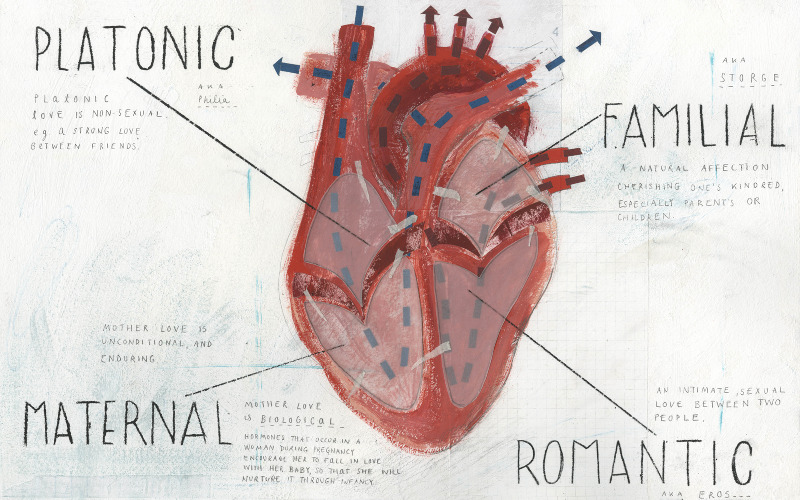 PLATONIC
AKA
Philia
PLATONIC
LOVE IS NON-SEXUAL.
eg a STRONG LOVE
BETWEEN FRIENDS.
AKA
STORGE
FAMILIAL
A NATURAL AFFECTION
CHERISHING ONE'S KINDRED,
ESPECIALLY PARENT'S OR
CHILDREN
MOTHER LOVE IS
UNCONDITIONAL, AND
ENDURING
MATERNAL
MOTHER LOVE
IS BIOLOGICAL
HORMONES THAT OCCUR IN A
WOMAN DURING PREGNANCY
ENCOURAGE HER TO FALL IN LOVE
WITH HER BABY, SO THAT SHE WILL
NURTURE IT THROUGH INFANCY
AN INTIMATE, SEXUAL
LOVE BETWEEN TWO
PEOPLE.
ROMANTIC
AKA EROS---